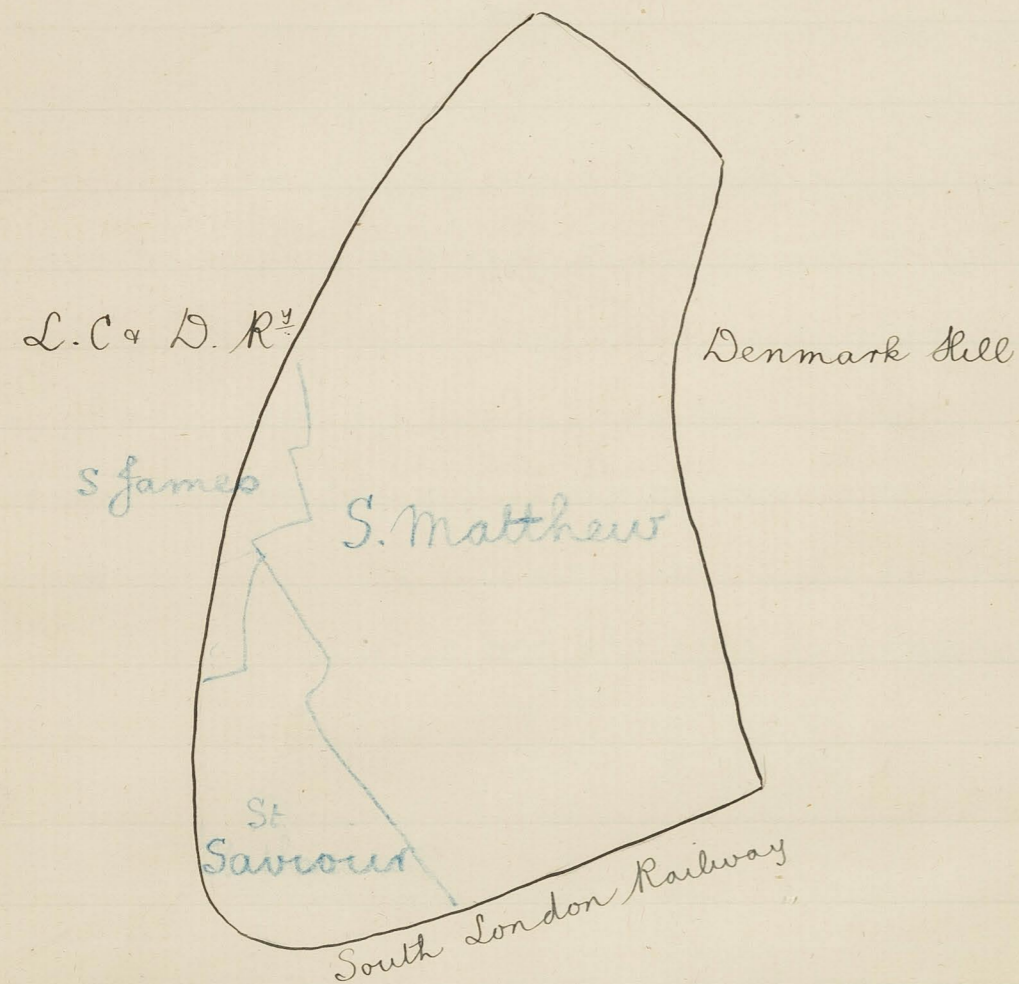 L. C & D. Ry
Denmark Hill
S James
S. Matthew
St
Saviour
South London Railway